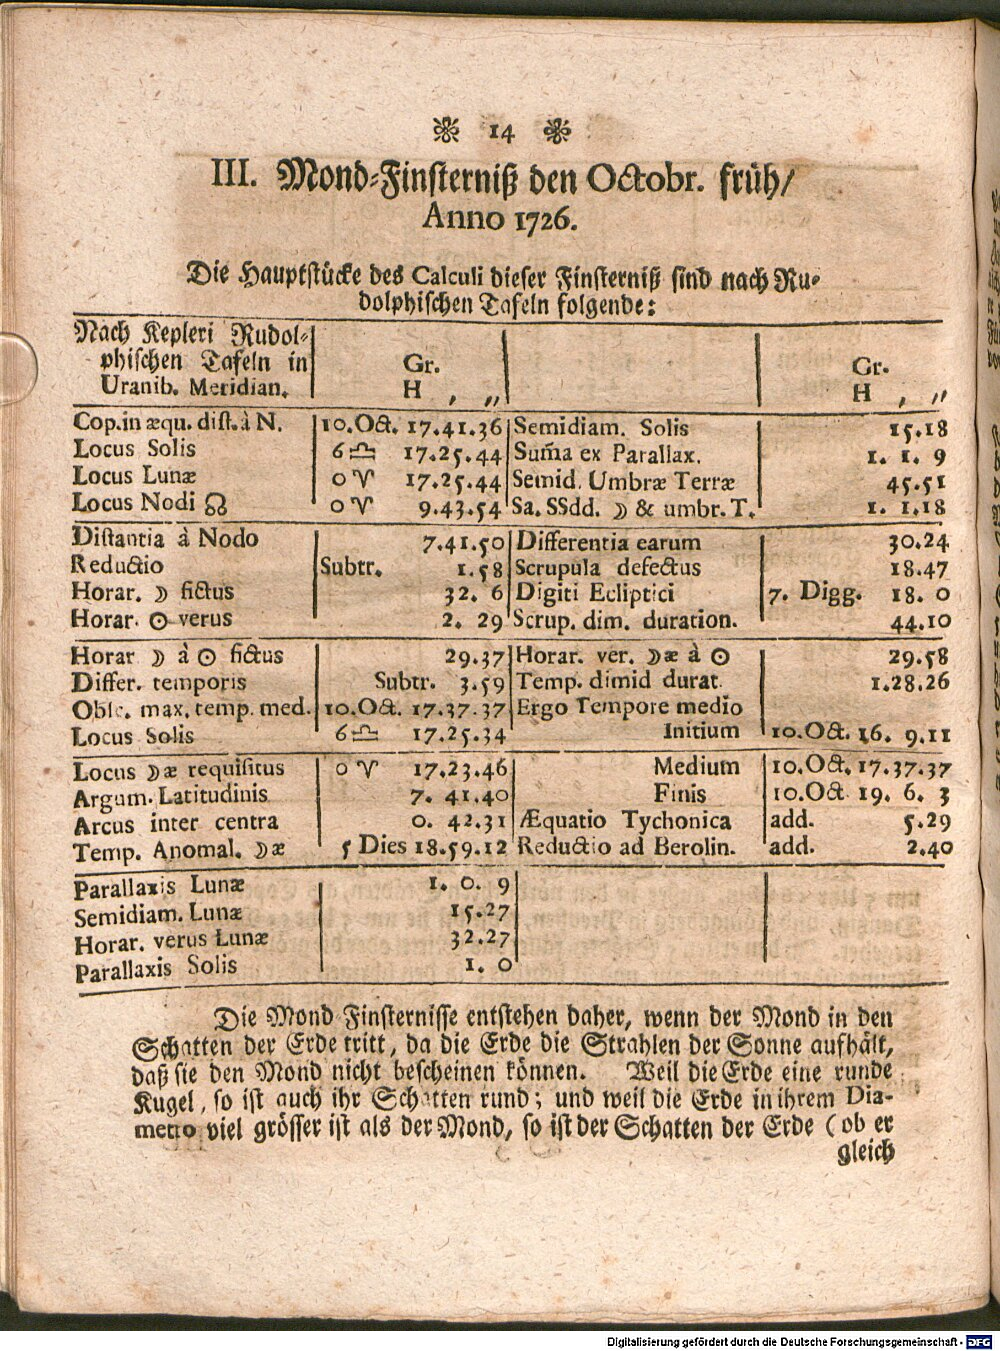 14
III. Mond-Finsterniß den Octobr. früh/
Anno 1726.
Die Hauptstücke des Calculi dieser Finsterniß sind nach Ru-
dolphischen Tafeln folgende:
Nach Kepleri Rudol-
phischen Tafeln in Gr. Gr.
Uranib. Meridian. H , ,, H , ,,
Cop. in æqu. dist. à N. 10. Oct. 17.41.36 Semidiam. Solis 15.18
Locus Solis 6 ♎ 17.25.44 Sum̃a ex Parallax. 1. 1. 9
Locus Lunæ 0 ♈ 17.25.44 Semid. Umbræ Terræ 45.51
Locus Nodi ☊ 0 ♈ 9.43.54 Sa. SSdd. ☽ & umbr. T. 1. 1.18
Distantia à Nodo 7.41.50 Differentia earum 30.24
Reductio Subtr. 1.58 Scrupula defectus 18.47
Horar. ☽ fictus 32. 6 Digiti Ecliptici 7. Digg. 18. 0
Horar. ☉ verus 2. 29 Scrup. dim. duration. 44.10
Horar ☽ à ☉ fictus 29.37 Horar. ver. ☽æ à ☉ 29.58
Differ. temporis Subtr. 3.59 Temp. dimid durat. 1.28.26
Obsc. max. temp. med. 10. Oct. 17.37.37 Ergo Tempore medio
Locus Solis 6 ♎ 17.25.34 Initium 10. Oct. 16. 9.11
Locus ☽æ requisitus 0 ♈ 17.23.46 Medium 10. Oct. 17.37.37
Argum. Latitudinis 7. 41.40 Finis 10. Oct 19. 6. 3
Arcus inter centra 0. 42.31 Æquatio Tychonica add. 5.29
Temp. Anomal. ☽æ 5 Dies 18.59.12 Reductio ad Berolin. add. 2.40
Parallaxis Lunæ 1. 0. 9
Semidiam. Lunæ 15.27
Horar. verus Lunæ 32.27
Parallaxis Solis 1. 0
Die Mond Finsternisse entstehen daher, wenn der Mond in den
Schatten der Erde tritt, da die Erde die Strahlen der Sonne aufhält,
daß sie den Mond nicht bescheinen können. Weil die Erde eine runde
Kugel, so ist auch ihr Schatten rund; und weil die Erde in ihrem Dia-
metro viel grösser ist als der Mond, so ist der Schatten der Erde (ob er
gleich
Digitalisierung gefördert durch die Deutsche Forschungsgemeinschaft - DFG